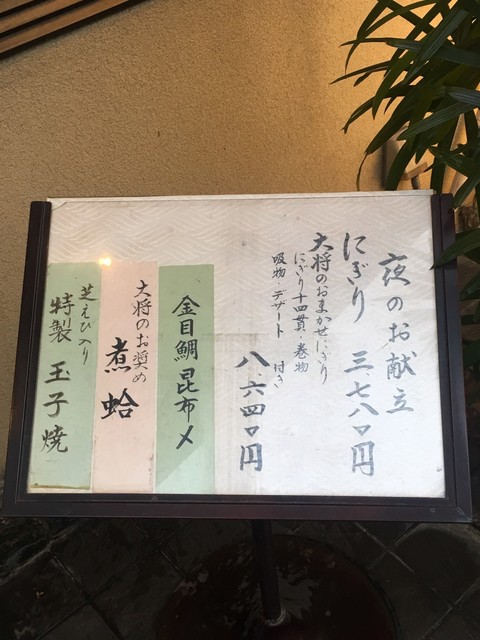 夜のお献立
にぎり 三、七八〇円
大将のおまかせにぎり
にぎり十四貫・巻物
吸物・デザート 付き
八、六四〇円
金目鯛昆布〆
大将のお奨め
煮蛤
芝えび入り
特製 玉子焼